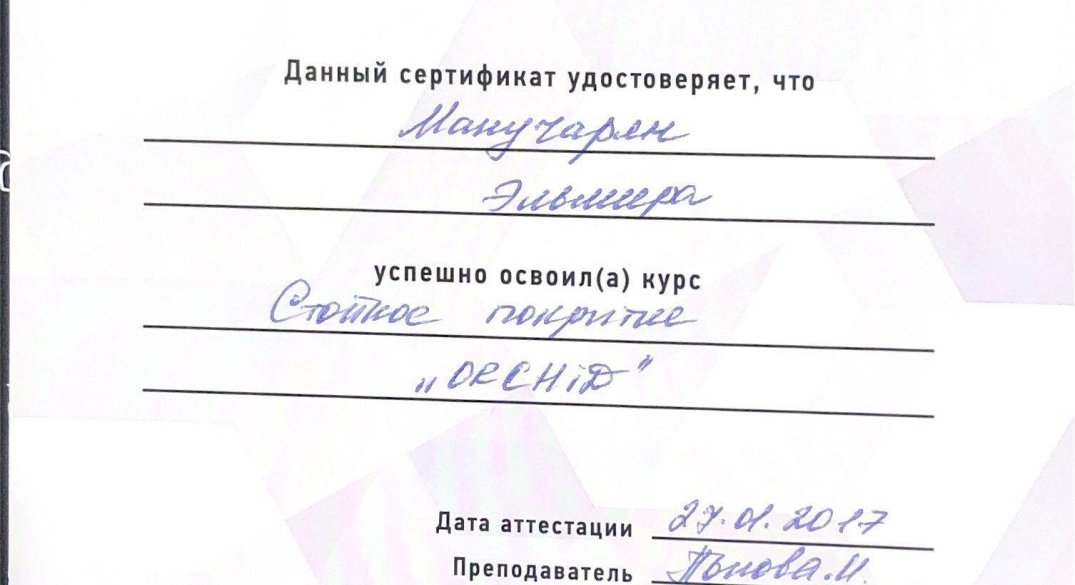 Данный сертификат удостоверяет, что
Манучарян
Эльмира
успешно освоил(а) курс
Стойкое покрытие
„ORCHiD"
Дата аттестации 27.01.2017
Преподаватель